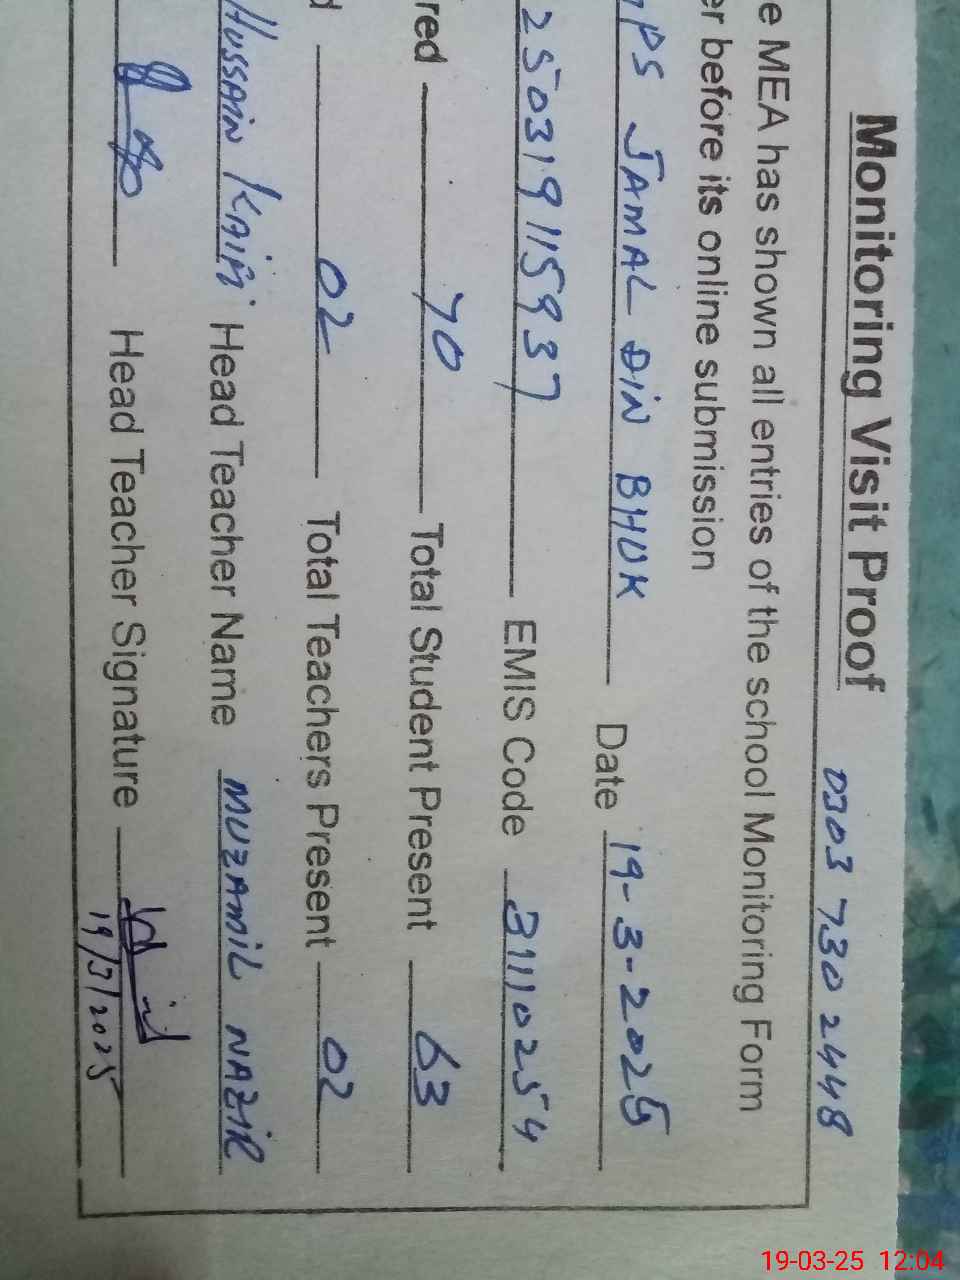 Monitoring Visit Proof 0303 730 2448
e MEA has shown all entries of the school Monitoring Form
er before its online submission
PS JAMAL DIN BHUK Date 19-3-2025
25031911 5937 EMIS Code 31110254
red 70 Total Student Present 63
d 02 Total Teachers Present 02
HUSSAIN Head Teacher Name MUZAMIL NAZIR
Head Teacher Signature
19/3/2025
19-03-25 12:04